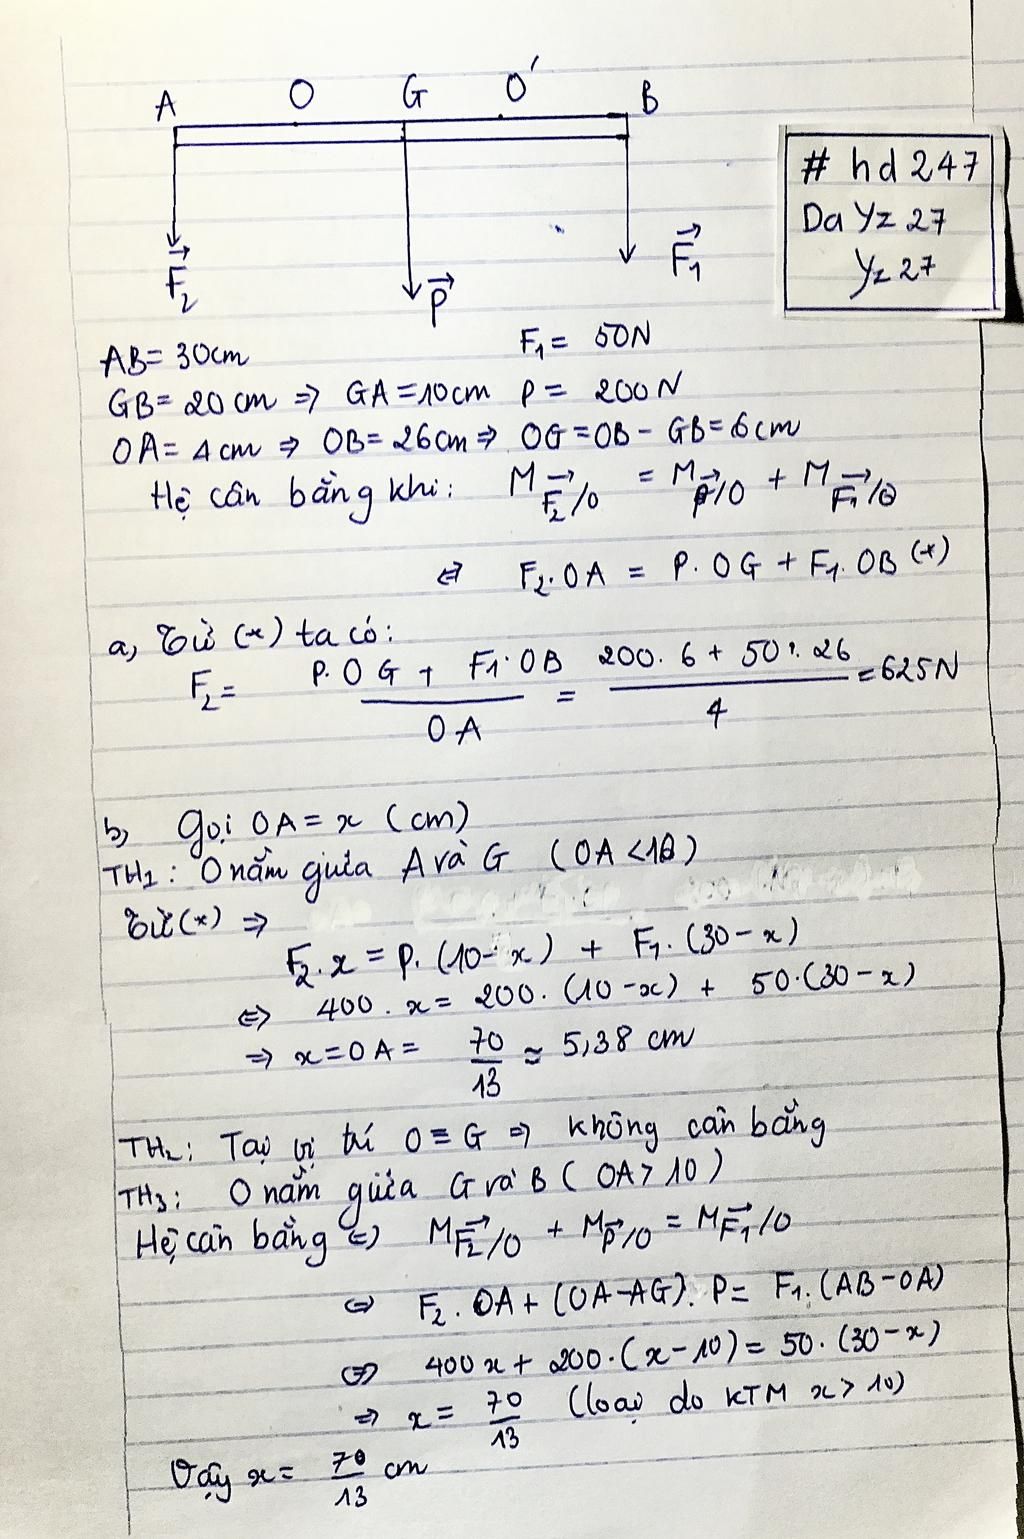 A O G O' B
# hd 247
Da Yz 27
Yz 27
F₂ P F₁
AB = 30cm F₁ = 50N
GB = 20 cm => GA = 10cm P = 200 N
OA = 4 cm => OB = 26cm => OG = OB - GB = 6 cm
Hệ cân bằng khi: M F₂/O = M P/O + M F₁/O
<=> F₂.OA = P.OG + F₁.OB (*)
a, Từ (*) ta có:
F₂ = (P.OG + F₁.OB)/OA = (200.6 + 50.26)/4 = 625N
b, Gọi OA = x (cm)
TH₁: O nằm giữa A và G (OA < 10)
Từ (*) =>
F₂.x = P.(10-x) + F₁.(30-x)
<=> 400.x = 200.(10-x) + 50.(30-x)
=> x = OA = 70/13 ≈ 5,38 cm
TH₂: Tại vị trí O ≡ G => không cân bằng
TH₃: O nằm giữa G và B (OA > 10)
Hệ cân bằng <=> M F₂/O + M P/O = M F₁/O
<=> F₂.OA + (OA-AG).P = F₁.(AB-OA)
<=> 400x + 200.(x-10) = 50.(30-x)
=> x = 70/13 (loại do KTM x > 10)
Vậy x = 70/13 cm